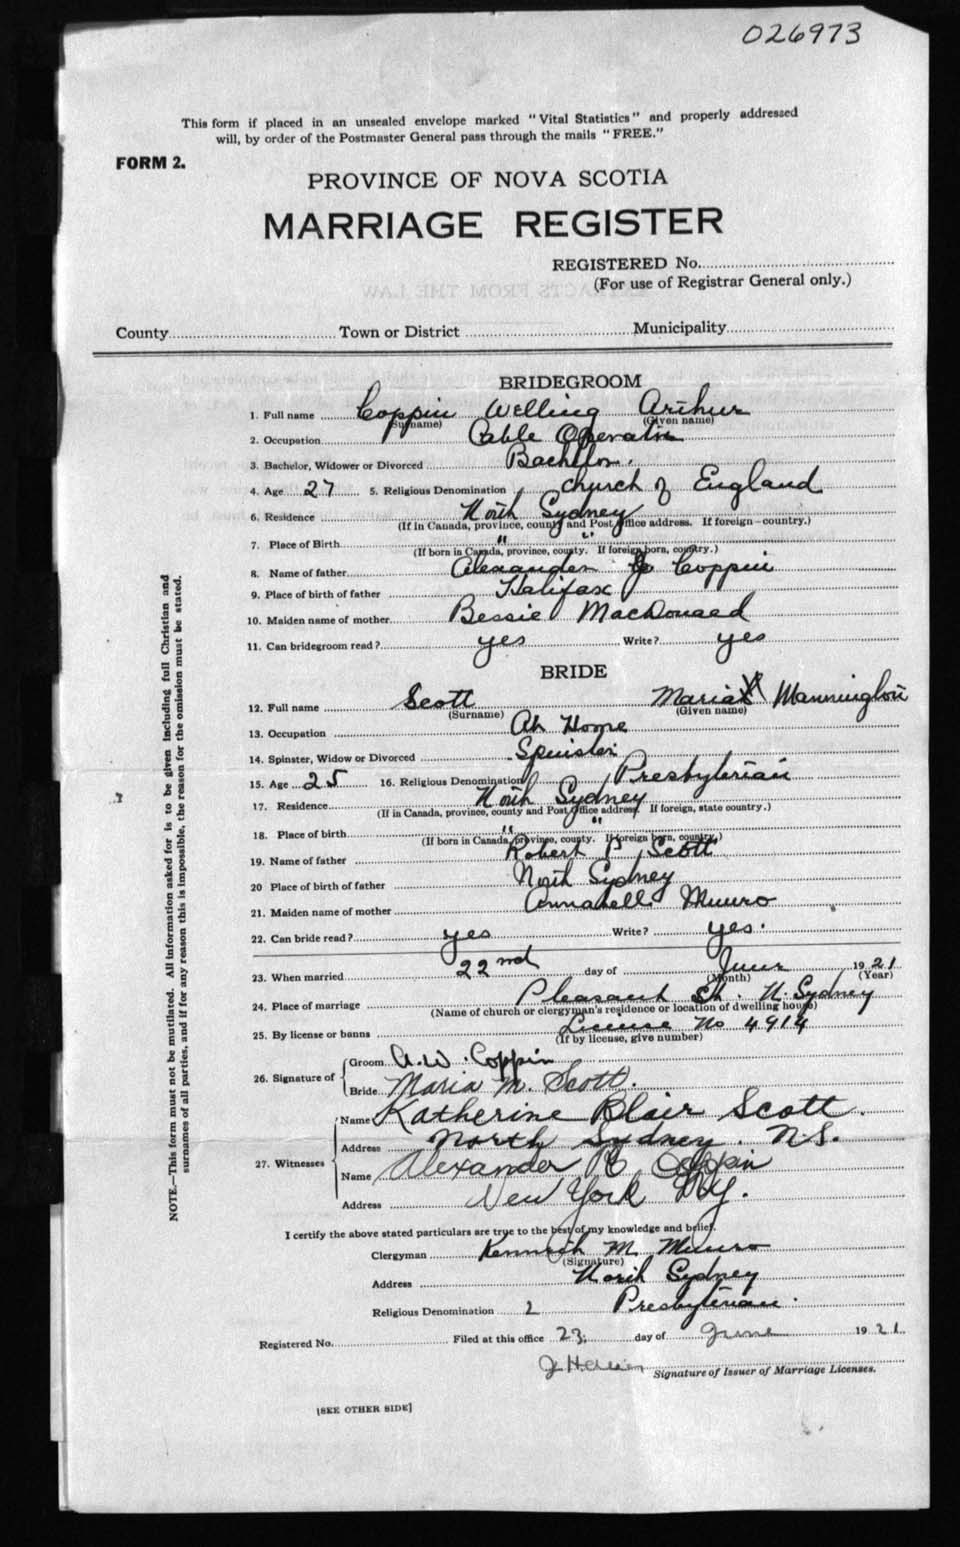 026973
This form if placed in an unsealed envelope marked "Vital Statistics" and properly addressed
will, by order of the Postmaster General pass through the mails "FREE."
FORM 2.
PROVINCE OF NOVA SCOTIA
MARRIAGE REGISTER
REGISTERED No.
(For use of Registrar General only.)
County Town or District Municipality
BRIDEGROOM
1. Full name Coppin Welling Arthur
(Surname) (Given name)
2. Occupation Cable Operator
3. Bachelor, Widower or Divorced Bachelor.
4. Age 27 5. Religious Denomination Church of England
6. Residence North Sydney
(If in Canada, province, county and Post Office address. If foreign—country.)
7. Place of Birth " "
(If born in Canada, province, county. If foreign born, country.)
8. Name of father Alexander Coppin
9. Place of birth of father Halifax
10. Maiden name of mother Bessie MacDonald
11. Can bridegroom read? yes Write? yes
BRIDE
12. Full name Scott Maria Mannington
(Surname) (Given name)
13. Occupation At Home
14. Spinster, Widow or Divorced Spinster
15. Age 25 16. Religious Denomination Presbyterian
17. Residence North Sydney
(If in Canada, province, county and Post Office address. If foreign, state country.)
18. Place of birth " "
(If born in Canada, province, county. If foreign born, country.)
19. Name of father Robert P. Scott
20 Place of birth of father North Sydney
21. Maiden name of mother Annabell Munro
22. Can bride read? yes Write? yes.
23. When married 22nd day of June 1921
(Month) (Year)
24. Place of marriage Pleasant St. N. Sydney
(Name of church or clergyman's residence or location of dwelling house)
25. By license or banns License No 4914
(If by license, give number)
26. Signature of Groom A.W. Coppin
Bride Maria M. Scott.
27. Witnesses Name Katherine Blair Scott.
Address North Sydney. N.S.
Name Alexander C Coppin
Address New York N.Y.
I certify the above stated particulars are true to the best of my knowledge and belief.
Clergyman Kenneth M. Munro
(Signature)
Address North Sydney
Religious Denomination Presbyterian.
Registered No. Filed at this office 23. day of June 1921.
Signature of Issuer of Marriage Licenses.
[SEE OTHER SIDE]
NOTE.—This form must not be mutilated. All information asked for is to be given including full Christian and
surnames of all parties, and if for any reason this is impossible, the reason for the omission must be stated.